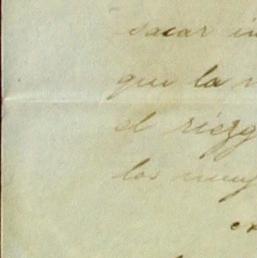 sacar in
que la
el riezg
los muy